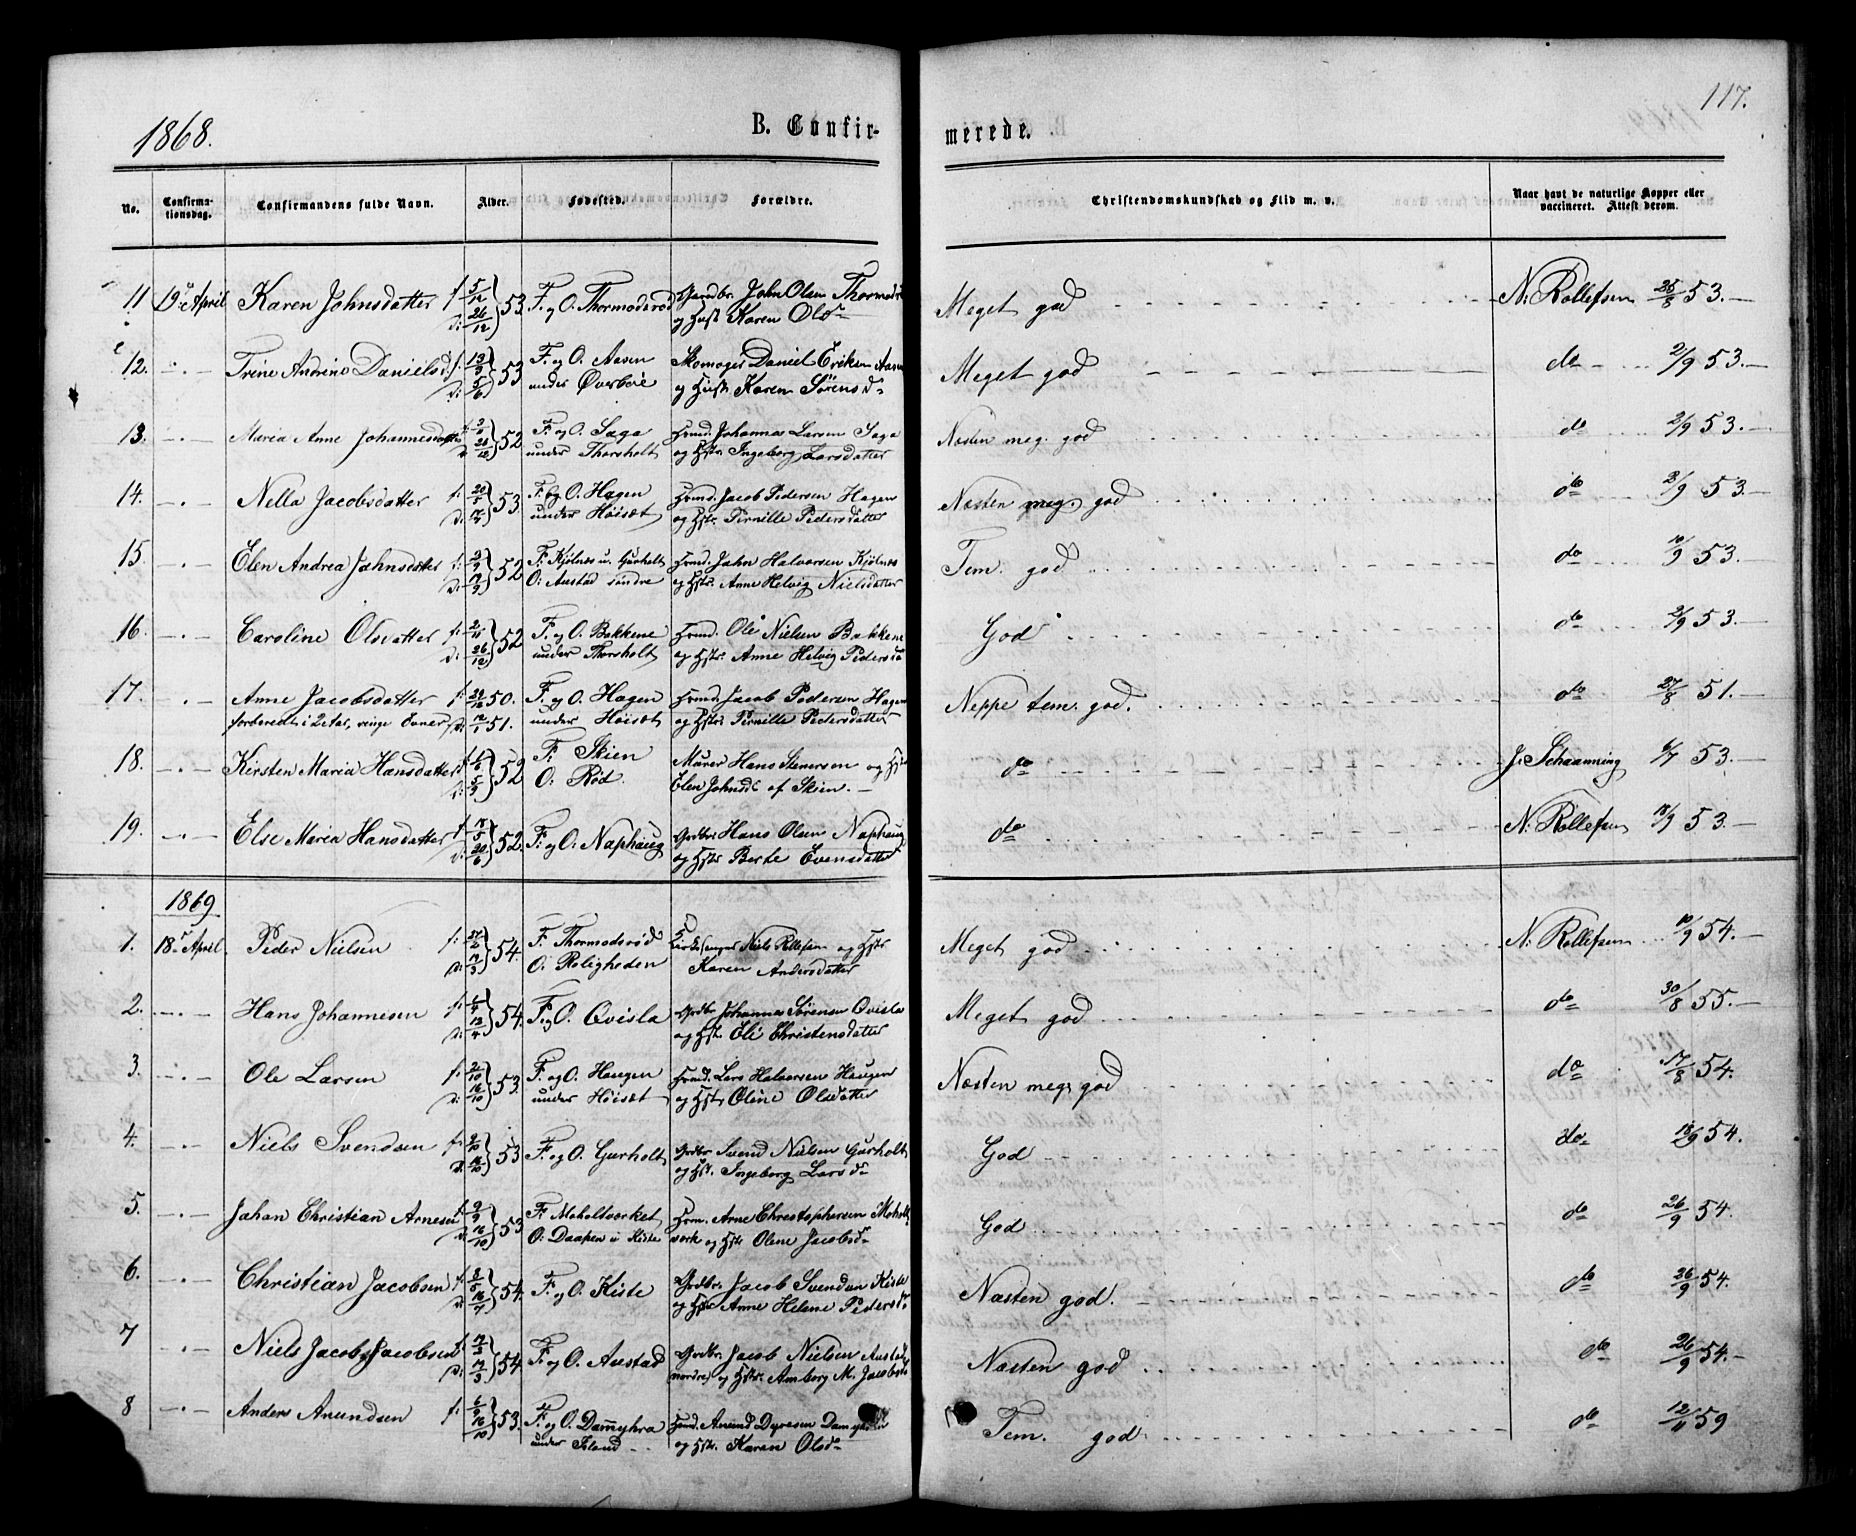 117.
1868.
B. Confirmerede.
No. Confirmationsdag. Confirmandens fulde Navn. Alder. Fødested. Forældre. Christendomskundskab og Flid m. v. Naar havt de naturlige Kopper eller vaccineret. Attest derom.
11 19de April Karen Johnsdatter f 5/12 d: 26/12 } 53. F. og O. Thormodsrød Gaardbr. John Olsen og Hust. Karen Olsd Meget god N. Rollefsen 25/8 53.
12. Trine Andrine Danielsd. f: 13/3 d: 5/6 } 53 F. og O. Aasen under Øverbøe Skomager Daniel Eriksen og Hustr. Karen Sörensd Meget god do 2/9 53.
13. Maria Anne Johannesdatter 52 F. og O. Saga under Thorsholt Huusmd. Johannes Larsen Saga og Hstr. Ingeborg Larsdatter Næsten meg. god do 2/9 53.
14. Nella Jacobsdatter f: 20/5 d: 17/7 } 53. F. og O. Hagen under Höisæt Huusmd. Jacob Pedersen Hagen og Hstr. Pernille Pedersdatter Næsten meg. god do 2/9 53.
15. Elen Andrea Johnsdatter 52 F. Kjölnes u. Gurholt O: Austad söndre Huusmd. John Halvorsen Kjölnes og Hstr. Anne Helvig Nielsdatter Tem. god do 53.
16. Caroline Olsdatter f: 2/11 d: 26/12 } 52 F. og O. Bakkene under Thorsholt Huusmd. Ole Nielsen Bakkene og Hstr. Anne Helvig Pedersd God do 2/9 53.
17. Anne Jacobsdatter f 50. F. og O. Hagen Huusmd. Jacob Pedersen Hagen Neppe tem. god. do 27/8 51.
forberedt i 2 Aar, ringe Evner d: 51. under Höisæt og Hstr. Pernille Pedersdatter
18. Kirsten Maria Hansdatter 52 F: Skien O: Rød. Murer Hans Stenersen og Hstr Elen Johnsd af Skien. do J. Schaanning 53.
19. Else Maria Hansdatter f 17/5 d: 20/6 } 52. F. og O: Naphaug Grdbr. Hans Olsen Naphaug og Hstr Berte Evensdatter do N. Rollefsen 18/9 53.
1869
1. 18de April. Peder Nielsen f: d: 54. F: Thormodsrød O: Roligheden Kirkesanger Niels Rollefsen og Hstr Karen Andersdatter Meget god N. Rollefsen 10/9 54.
2. Hans Johannesen 54. F. og O. Qvisla Grdbr. Johannes Sørensen Qvisla og Hstr. Eli Christensdatter Meget god do 30/8 55.
3. Ole Larsen f: 2/10 d: 16/10 } 53. F. og O. Haugen under Höisæt Huusmd. Lars Halvorsen Haugen og Hstr. Oline Olsdatter Næsten meg. god do 17/8 54.
4. Niels Svendsen 53 F. og O. Gurholt Grdbr. Svend Nielsen Gurholt og Hst. Ingeborg Larsd God do 18/9 54.
5. Johan Christian Arnesen f: 9/9 d: 16/10 } 53 F: Moholtværket O: Daapen u Kiste Hrm. Arne Christophersen Moholtværk og Hstr Olene Jacobsd God do 26/9 54.
6. Christian Jacobsen 54. F. og O. Kiste Grdbr. Jacob Svendsen Kiste og Hstr Anne Helene Pedersd Næsten god. do 26/9 54.
7 Niels Jacob Jacobsen 54 F. og O. Austad Grdbr. Jacob Nielsen Austad nordre og Hstr. Amborg M. Jacobsd Næsten god do 26/9 54.
8 Anders Anundsen f: 6/9 16/10 } 53. F. og O. Dammyhra under Island Huusmd. Anund Dyresen Dammyhra og Hstr. Karen Olsd Tem. god do 12/11 59